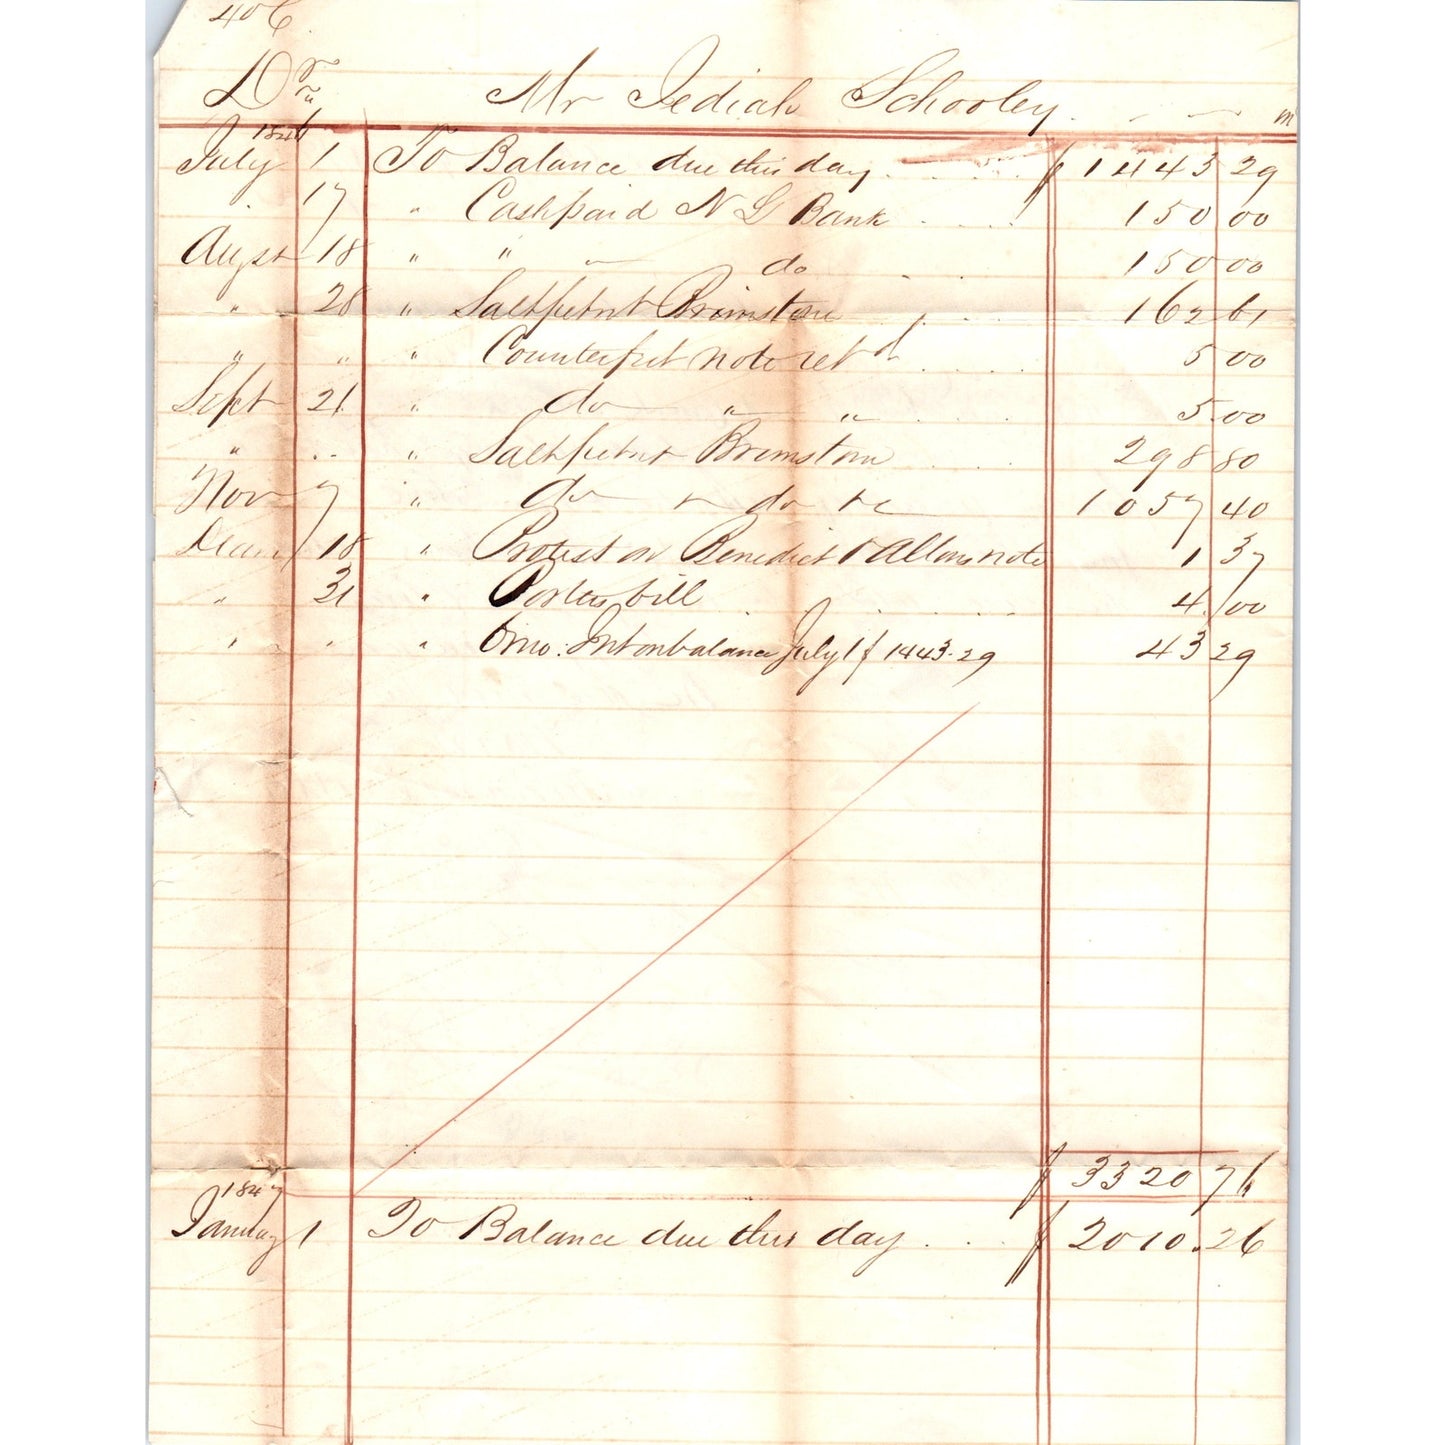 406
Dr Mr Jediah Schooley
1846
July 1 To Balance due this day $ 1443 29
" 17 " Cash paid N G Bank 150 00
Augst 18 " " " do 150 00
" 28 " Saltpetre & Brimstone 162 61
" " " Counterfeit note retd 5 00
Sept 21 " do " " 5.00
" " " Saltpetre & Brimstone 298 80
Nov 7 " do & do &c 1057 40
18 " Protest on Benedict & Allens note 1 37
" 31 " Porters bill 4.00
" " " 6 mo: Int on balance July 1 $ 1443.29 43 29
$ 3320 76
1847
January 1 To Balance due this day $ 2010.26